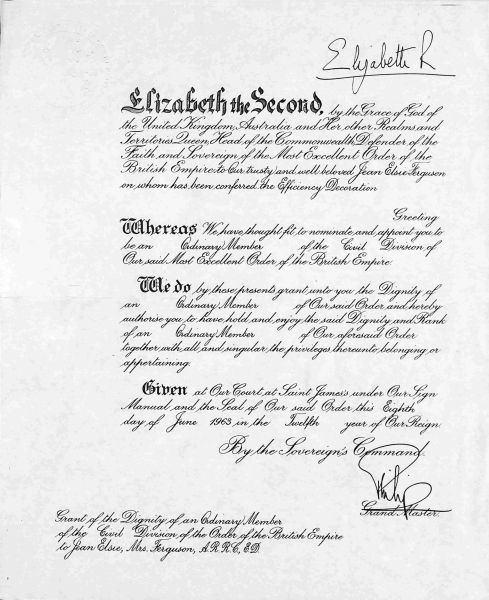 Elizabeth R
Elizabeth the Second, by the Grace of God of
the United Kingdom, Australia and Her other Realms and
Territories Queen, Head of the Commonwealth, Defender of the
Faith and Sovereign of the Most Excellent Order of the
British Empire to Our trusty and well beloved Jean Elsie Ferguson
on whom has been conferred the Efficiency Decoration
Greeting
Whereas We have thought fit to nominate and appoint you to
be an Ordinary Member of the Civil Division of
Our said Most Excellent Order of the British Empire
We do by these presents grant unto you the Dignity of
an Ordinary Member of Our said Order and hereby
authorise you to have hold and enjoy the said Dignity and Rank
of an Ordinary Member of Our aforesaid Order
together with all and singular the privileges thereunto belonging or
appertaining.
Given at Our Court at Saint James's under Our Sign
Manual and the Seal of Our said Order this Eighth
day of June 1963 in the Twelfth year of Our Reign.
By the Sovereign's Command.
Philip
Grand Master.
Grant of the Dignity of an Ordinary Member
of the Civil Division of the Order of the British Empire
to Jean Elsie, Mrs. Ferguson, A.R.R.C., E.D.